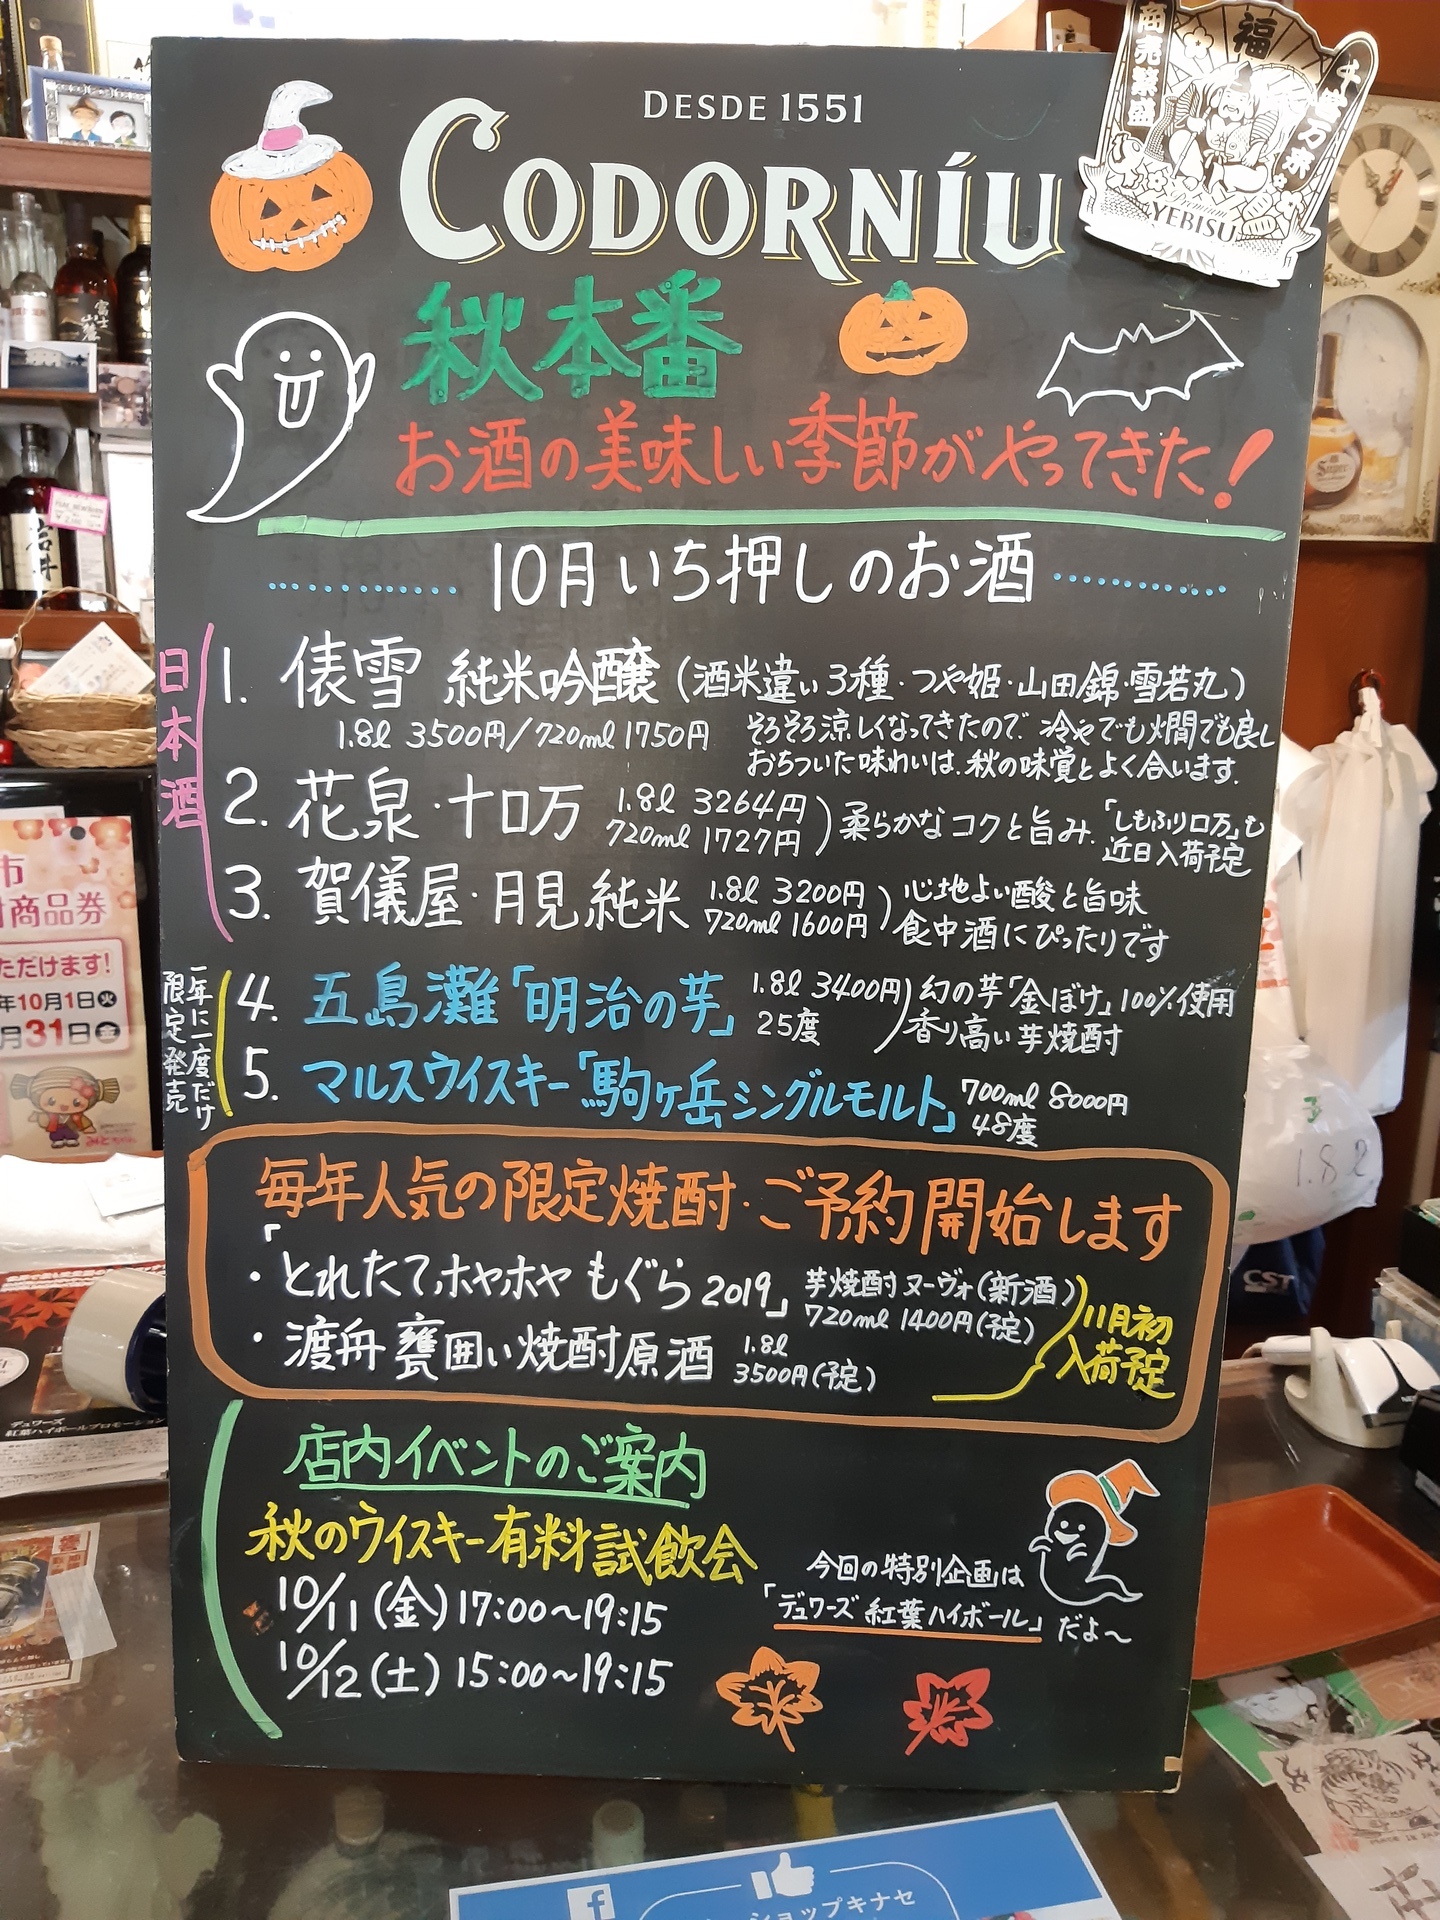 DESDE 1551
CODORNÍU
商売繁盛
福
千客万来
YEBISU
秋本番
お酒の美味しい季節がやってきた!
10月いち押しのお酒
日本酒
1. 俵雪 純米吟醸 (酒米違い3種・つや姫・山田錦・雪若丸)
1.8l 3500円/720ml 1750円
そろそろ涼しくなってきたので 冷やでも燗でも良し
おちついた味わいは、秋の味覚とよく合います。
2. 花泉・十ロ万
1.8l 3264円
720ml 1727円
柔らかなコクと旨み。
「しもふりロ万」も
近日入荷予定
3. 賀儀屋・月見 純米
1.8l 3200円
720ml 1600円
心地よい酸と旨味
食中酒にぴったりです
一年に一度だけ
限定発売
4. 五島灘「明治の芋」
1.8l 3400円
25度
幻の芋「金ぼけ」100%使用
香り高い芋焼酎
5. マルスウイスキー「駒ヶ岳シングルモルト」
700ml 8000円
48度
毎年人気の限定焼酎・ご予約開始します
・「とれたてホヤホヤ もぐら2019」
芋焼酎ヌーヴォ(新酒)
720ml 1400円(予定)
・渡舟 甕囲い焼酎原酒
1.8l
3500円(予定)
11月初
入荷予定
店内イベントのご案内
秋のウイスキー有料試飲会
10/11(金)17:00~19:15
10/12(土)15:00~19:15
今回の特別企画は
「デュワーズ 紅葉ハイボール」だよ~
富士山麓
岩井
市
商品券
ただけます!
年10月1日火
月31日
デュワーズ
紅葉ハイボールプロモーション
1.8l
CST
Super
f
ショップキナセ